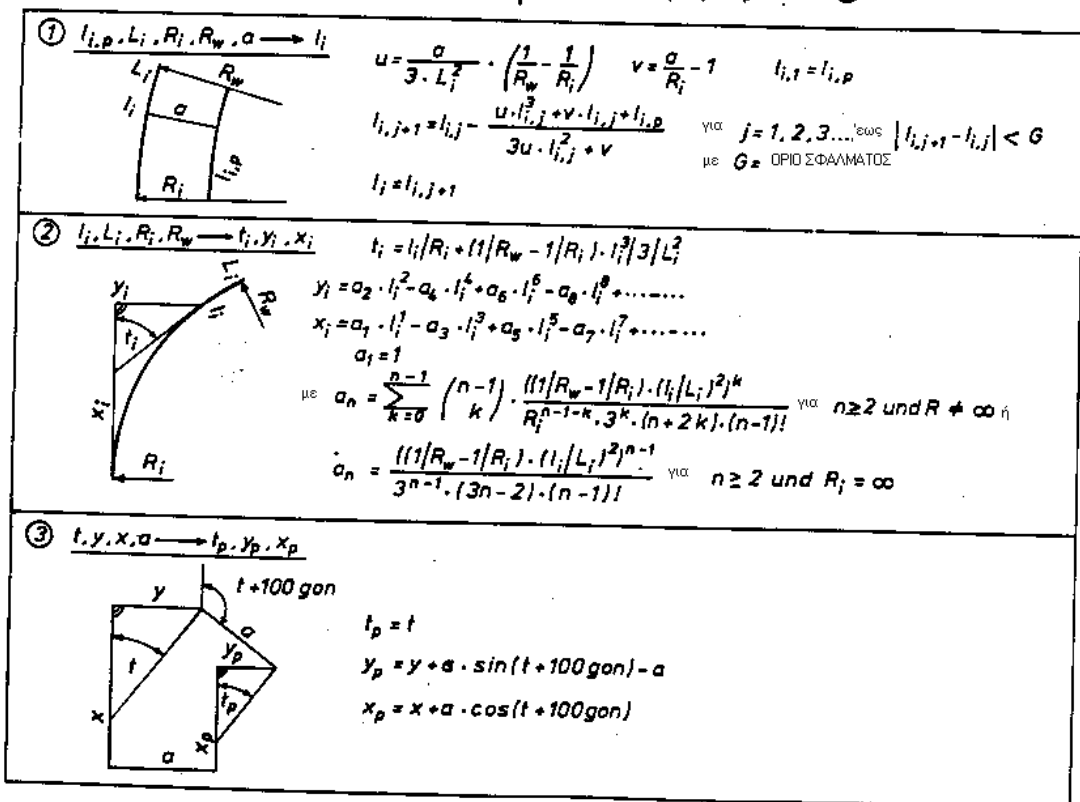 ① l_{i,p}, L_i, R_i, R_w, a ⟶ l_i
u = \frac{a}{3 · L_i^2} · (\frac{1}{R_w} − \frac{1}{R_i}) v = \frac{a}{R_i} − 1 l_{i,1} = l_{i,p}
L_i R_w
l_i a
l_{i,p}
R_i
l_{i,j+1} = l_{i,j} − \frac{u · l_{i,j}^3 + v · l_{i,j} + l_{i,p}}{3u · l_{i,j}^2 + v} για j = 1, 2, 3.... 'εως |l_{i,j+1} − l_{i,j}| < G
με G = ΟΡΙΟ ΣΦΑΛΜΑΤΟΣ
l_i = l_{i,j+1}
② l_i, L_i, R_i, R_w ⟶ t_i, y_i, x_i
t_i = l_i/R_i + (1/R_w − 1/R_i) · l_i^3/3/L_i^2
y_i L_i
R_w
l_i
t_i
x_i
R_i
y_i = a_2 · l_i^2 − a_4 · l_i^4 + a_6 · l_i^6 − a_8 · l_i^8 + .......
x_i = a_1 · l_i^1 − a_3 · l_i^3 + a_5 · l_i^5 − a_7 · l_i^7 + .......
a_1 = 1
με a_n = \sum_{k=0}^{n−1} \binom{n−1}{k} · \frac{((1/R_w − 1/R_i) · (l_i/L_i)^2)^k}{R_i^{n−1−k} · 3^k · (n + 2k) · (n−1)!} για n ≥ 2 und R ≠ ∞ ή
a_n = \frac{((1/R_w − 1/R_i) · (l_i/L_i)^2)^{n−1}}{3^{n−1} · (3n − 2) · (n − 1)!} για n ≥ 2 und R_i = ∞
③ t, y, x, a ⟶ t_p, y_p, x_p
y t + 100 gon
a
y_p
t t_p
x x_p
a
t_p = t
y_p = y + a · sin(t + 100 gon) − a
x_p = x + a · cos(t + 100 gon)